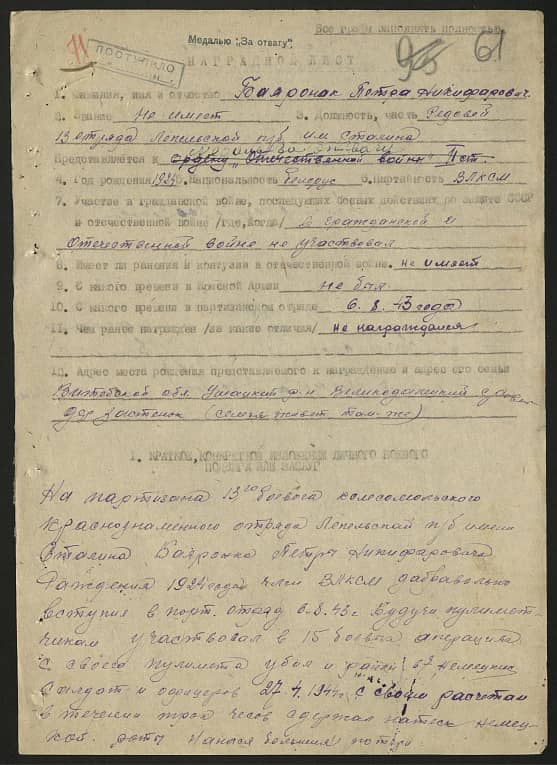 Все графы заполнять полностью.
Медалью „За отвагу"
71
ПОСТУПИЛО
95 61
НАГРАДНОЙ ЛИСТ
1. Фамилия, имя и отчество Бавронак Петра Никифарович
2. Звание Не имеет 3. Должность, часть Редовой
13 отряда Лепельской п/б им Сталина
Представляется к ордену „Отечественной войны" II ст.
4. Год рождения 1924 5. Национальность белорус 6. Партийность ВЛКСМ
7. Участие в гражданской войне, последующих боевых действиях по защите СССР
и отечественной войне /где, когда/ в гражданской и
Отечественной войне не участвовал
8. Имеет ли ранения и контузии в отечественной войне. не имеет
9. С какого времени в Красной Армии не был
10. С какого времени в партизанском отряде 6. 8. 43 года
11. Чем ранее награжден /за какие отличия/ не награждался
12. Адрес места рождения представляемого к награждению и адрес его семьи
Витебской обл. Ушацкий р-н Великодолецкий с/с
дер Застенок (семья живет там-же)
I. КРАТКОЕ, КОНКРЕТНОЕ ИЗЛОЖЕНИЕ ЛИЧНОГО БОЕВОГО
ПОДВИГА ИЛИ ЗАСЛУГ
На партизана 13го боевоса комсомольского
Краснознаменного отряда Лепельской п/б имени
Сталина Бавронка Петры Никифаровича
Раждения 1924 года член ВЛКСМ дабравольно
вступил в парт. отряд 6. 8. 43 г. Будучи пулимет-
чиком участвовал в 15 боевых операциях
С своего пулимета убил и ранил 6 Немецких
Салдат и офицеров 27. 4. 1944 г. с своим расчетам
в течении трох часов здержал натиск немец-
кой роты Нанося большия потери